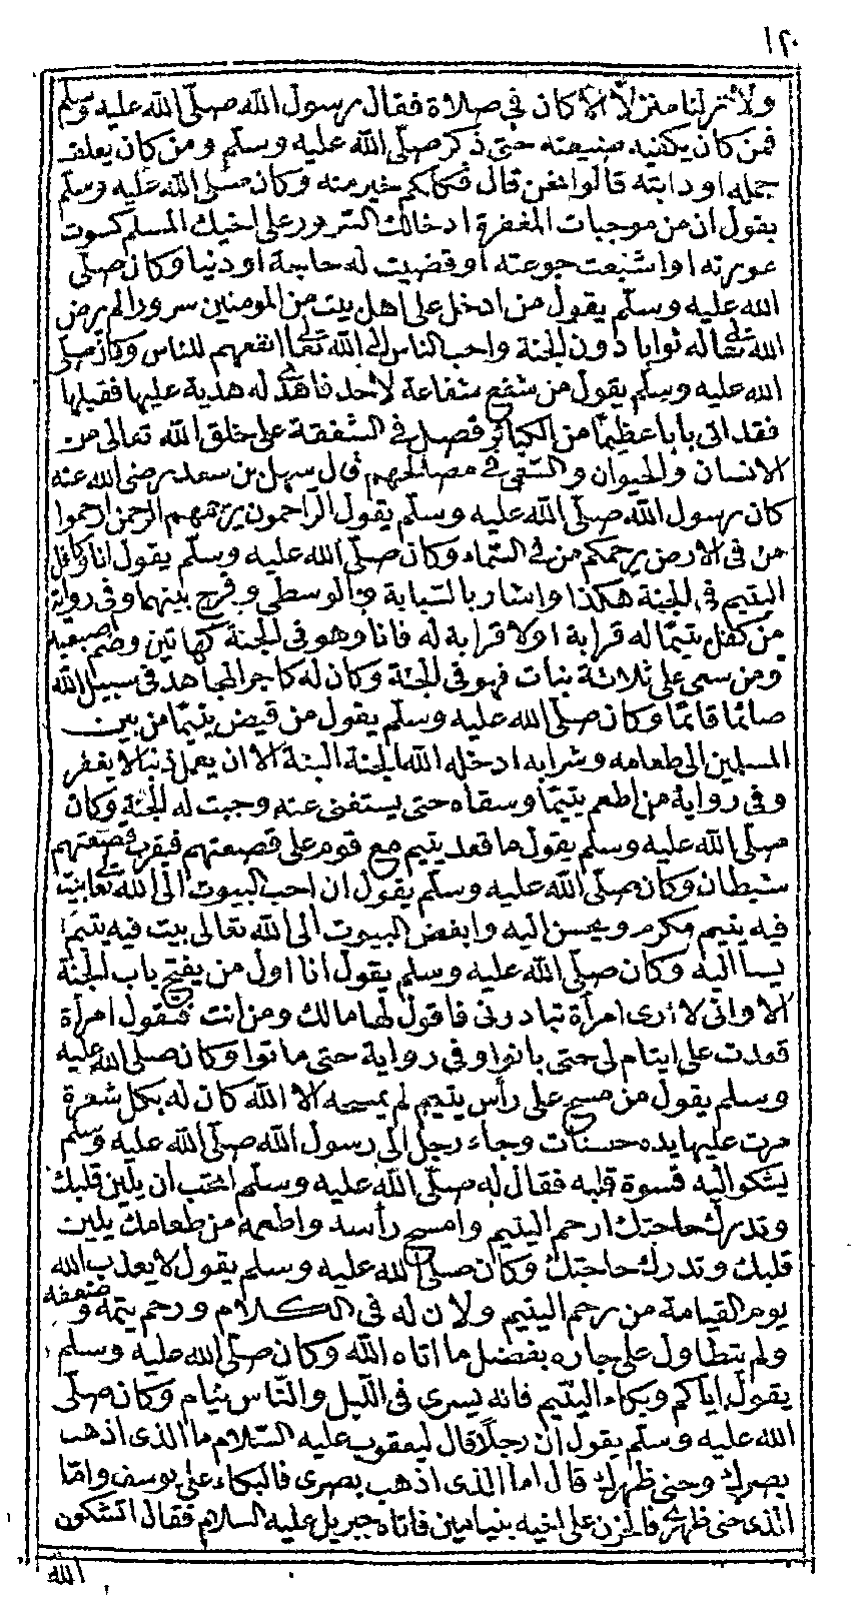 ١٢٠
ولا نزلنا منزلاً إلا كان في صلاة فقال رسول الله صلّى الله عليه وسلّم
فمن كان يكفيه ضيعته حتى ذكر صلّى الله عليه وسلّم ومن كان يعلف
جمله او دابته قالوا نحن قال فكلكم خير منه وكان صلّى الله عليه وسلّم
يقول ان من موجبات المغفرة ادخالك السّرور على اخيك المسلم كسوت
عورته او اشبعت جوعته او قضيت له حاجة او دينا وكان صلّى
الله عليه وسلّم يقول من ادخل على اهل بيت من المؤمنين سرورا لم يرض
الله تعالى له ثوابا دون الجنة واحب الناس الى الله تعالى انفعهم للناس وكان صلّى
الله عليه وسلّم يقول من شفع شفاعة لأحد فاهدى له هدية عليها فقبلها
فقد اتى بابا عظيمًا من الكبائر فصل في الشفقة على خلق الله تعالى من
الانسان والحيوان والسّعى فى مصالحهم قال سهل بن سعد رضى الله عنه
كان رسول الله صلّى الله عليه وسلّم يقول الرّاحمون يرحمهم الرحمن ارحموا
من فى الارض يرحمكم من فى السّماء وكان صلّى الله عليه وسلّم يقول انا وكافل
اليتيم فى الجنة هكذا واشار بالسّبابة والوسطى وفرج بينهما وفى رواية
من كفل يتيمًا له قرابة او لا قرابة له فانا وهو فى الجنة كهاتين وضم اصبعيه
ومن سعى على ثلاثة بنات فهو فى الجنة وكان له كاجر المجاهد فى سبيل الله
صائمًا قائمًا وكان صلّى الله عليه وسلّم يقول من قبض يتيمًا من بين
المسلمين الى طعامه وشرابه ادخله الله الجنة البتة الا ان يعمل ذنبا لا يغفر
وفى رواية من اطعم يتيمًا وسقاه حتى يستغنى عنه وجبت له الجنة وكان
صلّى الله عليه وسلّم يقول ما قعد يتيم مع قوم على قصعتهم فيقرب قصعتهم
شيطان وكان صلّى الله عليه وسلّم يقول ان احب البيوت الى الله تعالى بيت
فيه يتيم مكرم ويحسن اليه وابغض البيوت الى الله تعالى بيت فيه يتيم
يسا اليه وكان صلّى الله عليه وسلّم يقول انا اول من يفتح باب الجنة
الا وانى لا ارى امرأة تبادرنى فاقول لها مالك ومن انت فتقول امرأة
قعدت على ايتام لى حتى بانوا وفى رواية حتى ماتوا وكان صلى الله عليه
وسلم يقول من مسح على رأس يتيم لم يمسحه الا الله كان له بكل شعرة
مرت عليها يده حسنات وجاء رجل الى رسول الله صلّى الله عليه وسلّم
يشكو اليه قسوة قلبه فقال له صلّى الله عليه وسلّم اتحب ان يلين قلبك
وتدرك حاجتك ارحم اليتيم وامسح رأسه واطعمه من طعامك يلين
قلبك وتدرك حاجتك وكان صلى الله عليه وسلم يقول لا يعذب الله
يوم القيامة من رحم اليتيم ولان له فى الكلام ورحم يتمه وضعفه
ولم يتطاول على جاره بفضل ما اتاه الله وكان صلّى الله عليه وسلّم
يقول اياكم وبكاء اليتيم فانه يسرى فى الليل والنّاس نيام وكان صلّى
الله عليه وسلّم يقول ان رجلًا قال ليعقوب عليه السّلام ما الذى اذهب
بصرك وحنى ظهرك قال اما الذى اذهب بصرى فالبكاء على يوسف وامّا
الّذى حنى ظهرى فالحزن على اخيه بنيامين فاتاه جبريل عليه السلام فقال اتشكون
الله